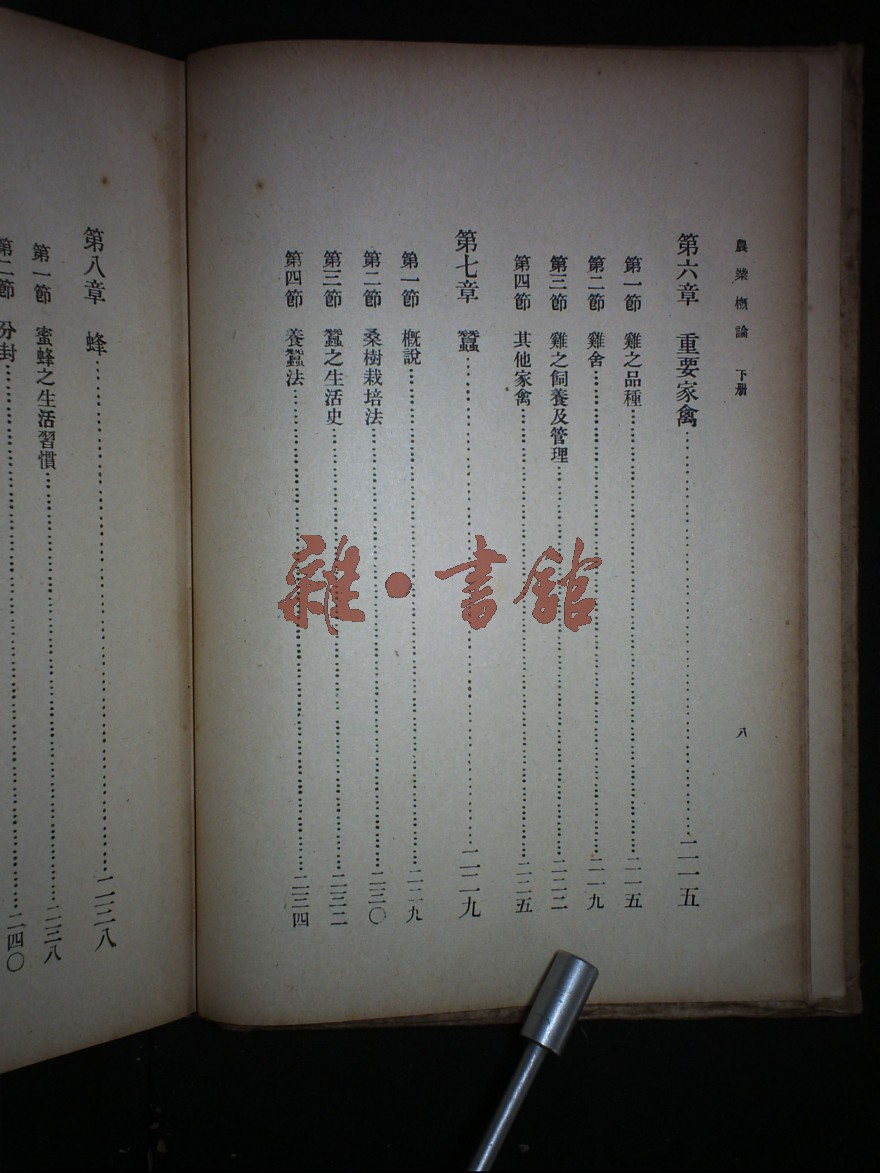 農業概論 下册
八
第六章 重要家禽……二一五
第一節 雞之品種……二一五
第二節 雞舍……二一九
第三節 雞之飼養及管理……二二二
第四節 其他家禽……二二五
第七章 蠶……二二九
第一節 概說……二二九
第二節 桑樹栽培法……二三〇
第三節 蠶之生活史……二三二
第四節 養蠶法……二三四
第八章 蜂……二三八
第一節 蜜蜂之生活習慣……二三八
第二節 分封……二四〇
雜·書館